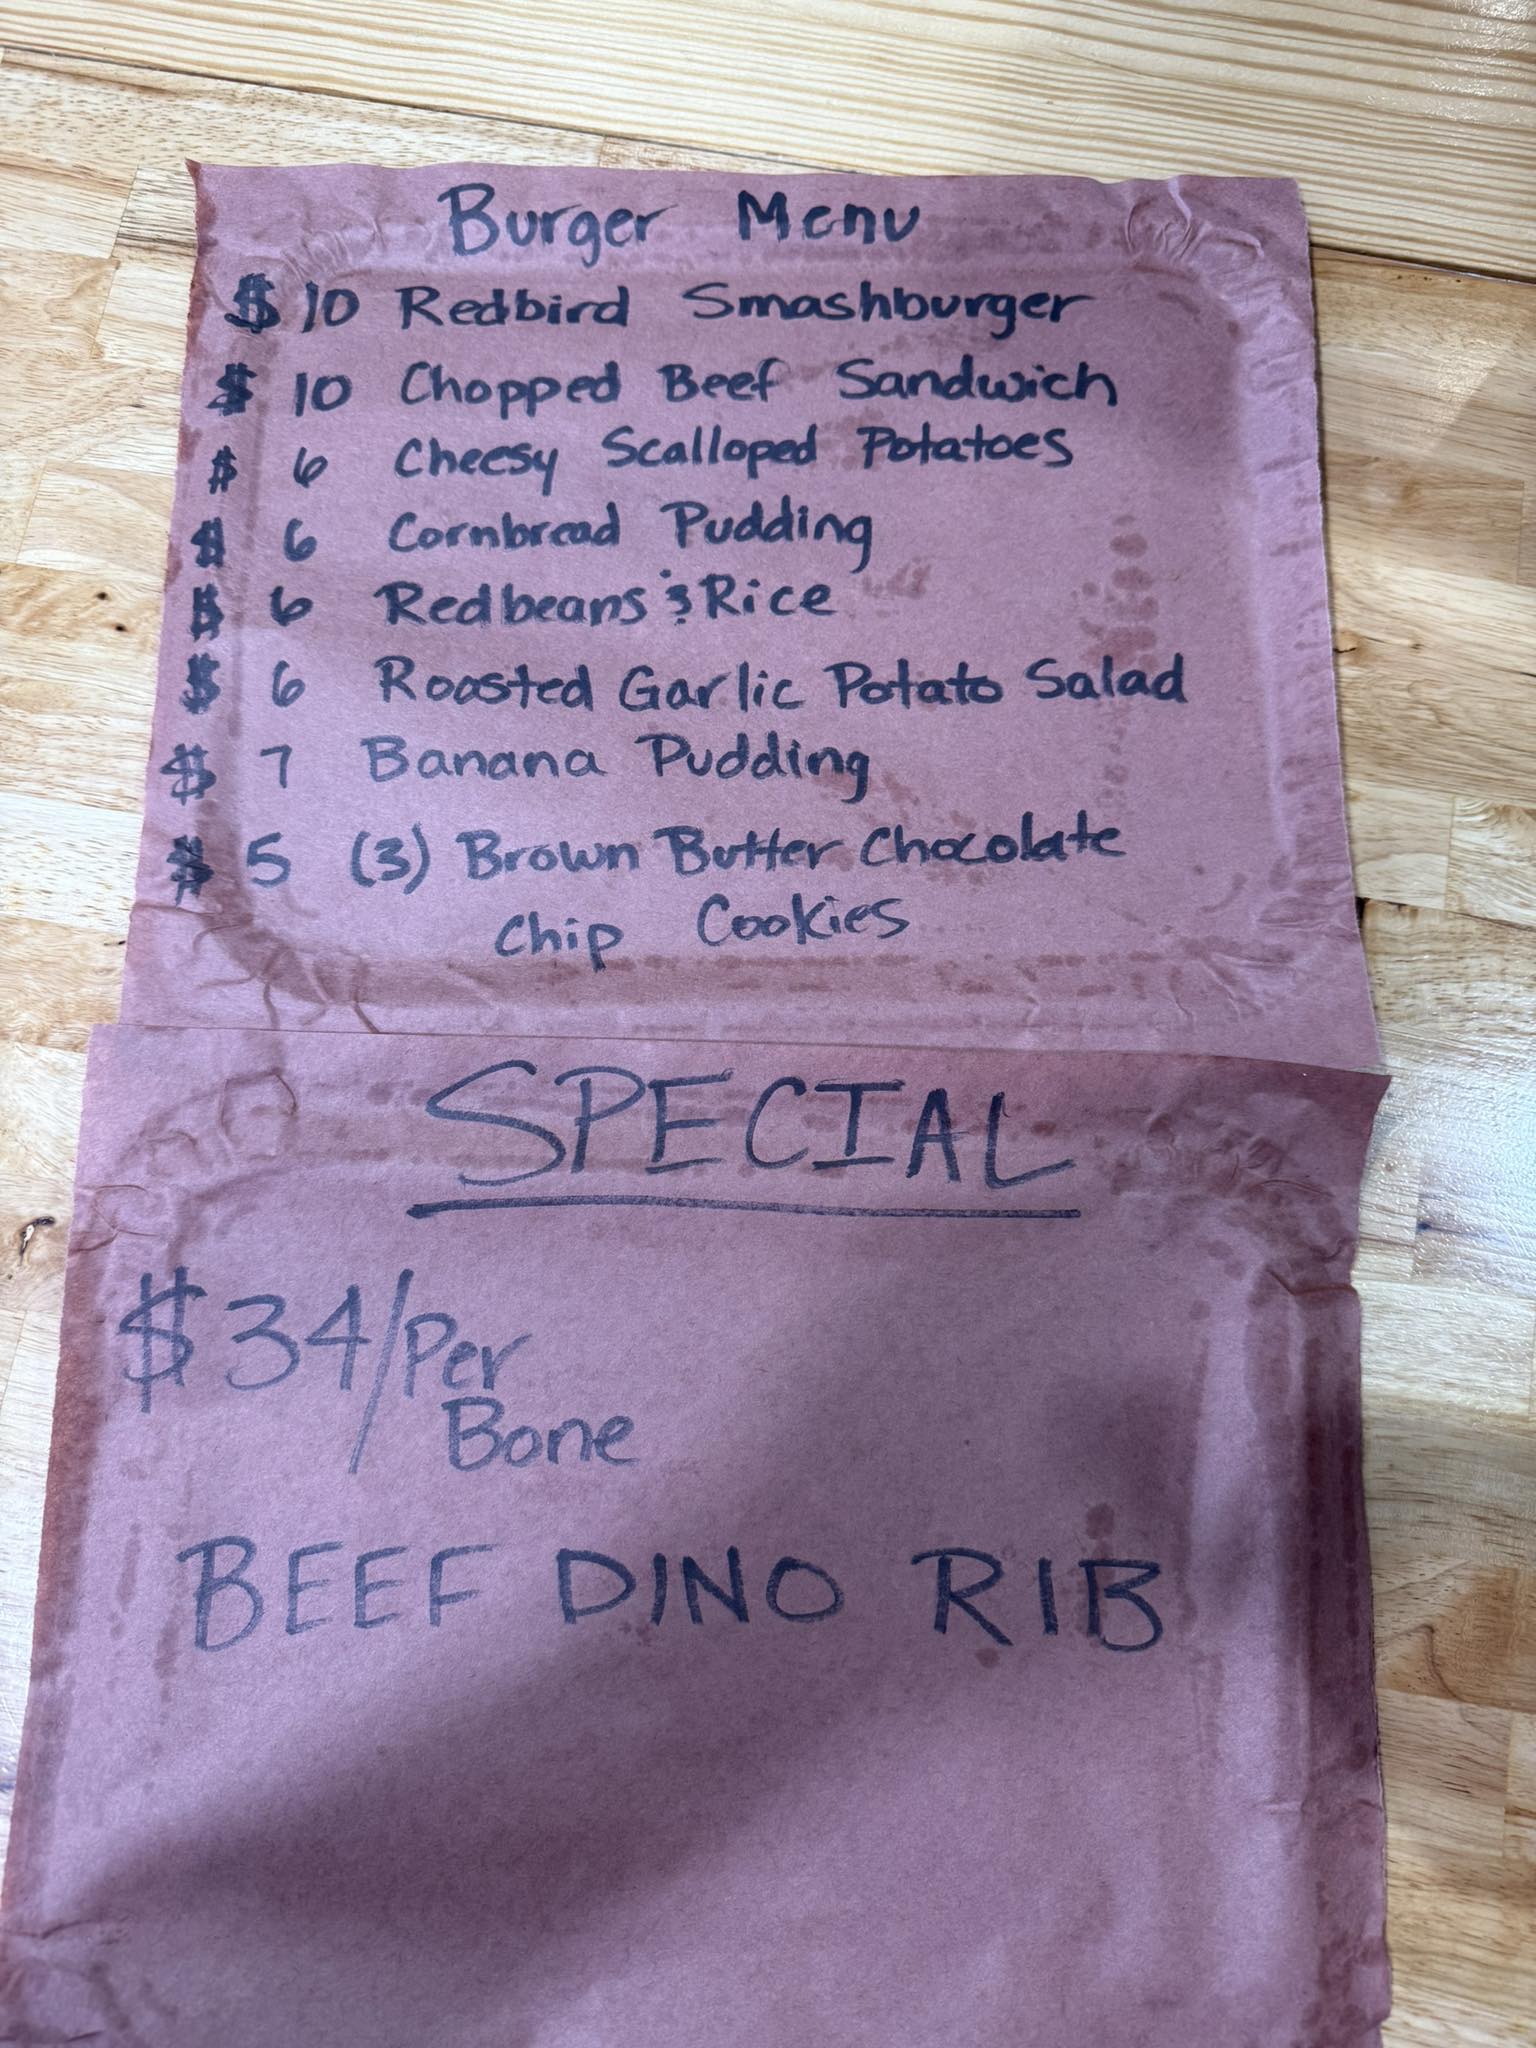 Burger Menu
$ 10 Redbird Smashburger
$ 10 Chopped Beef Sandwich
$ 6 Cheesy Scalloped Potatoes
$ 6 Cornbread Pudding
$ 6 Redbeans & Rice
$ 6 Roasted Garlic Potato Salad
$ 7 Banana Pudding
$ 5 (3) Brown Butter Chocolate
Chip Cookies
SPECIAL
$34/Per
Bone
BEEF DINO RIB